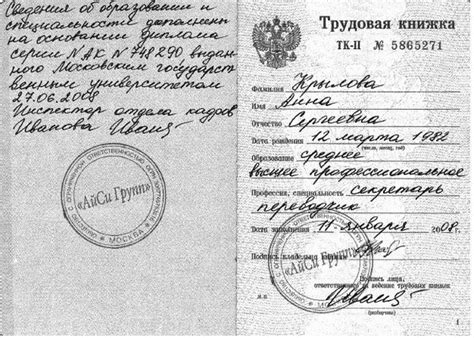 Сведения об образовании и
специальности дополнены
на основании диплома
серии NАК N 748290 выдан
ного Московским государст
венным университетом
27.06.2008
Инспектор отдела кадров
Иванова
«АйСи Групп»
МОСКВА
Трудовая книжка
ТК-II № 5865271
Фамилия Крылова
Имя Анна
Отчество Сергеевна
Дата рождения 12 марта 1982
(число, месяц, год)
Образование среднее
высшее профессиональное
Профессия, специальность секретарь
переводчик
Дата заполнения 11 января 2008 г.
Подпись владельца книжки
«АйСи Групп»
Подпись лица,
ответственного за ведение трудовых книжек
М.П.
(разборчиво)
1